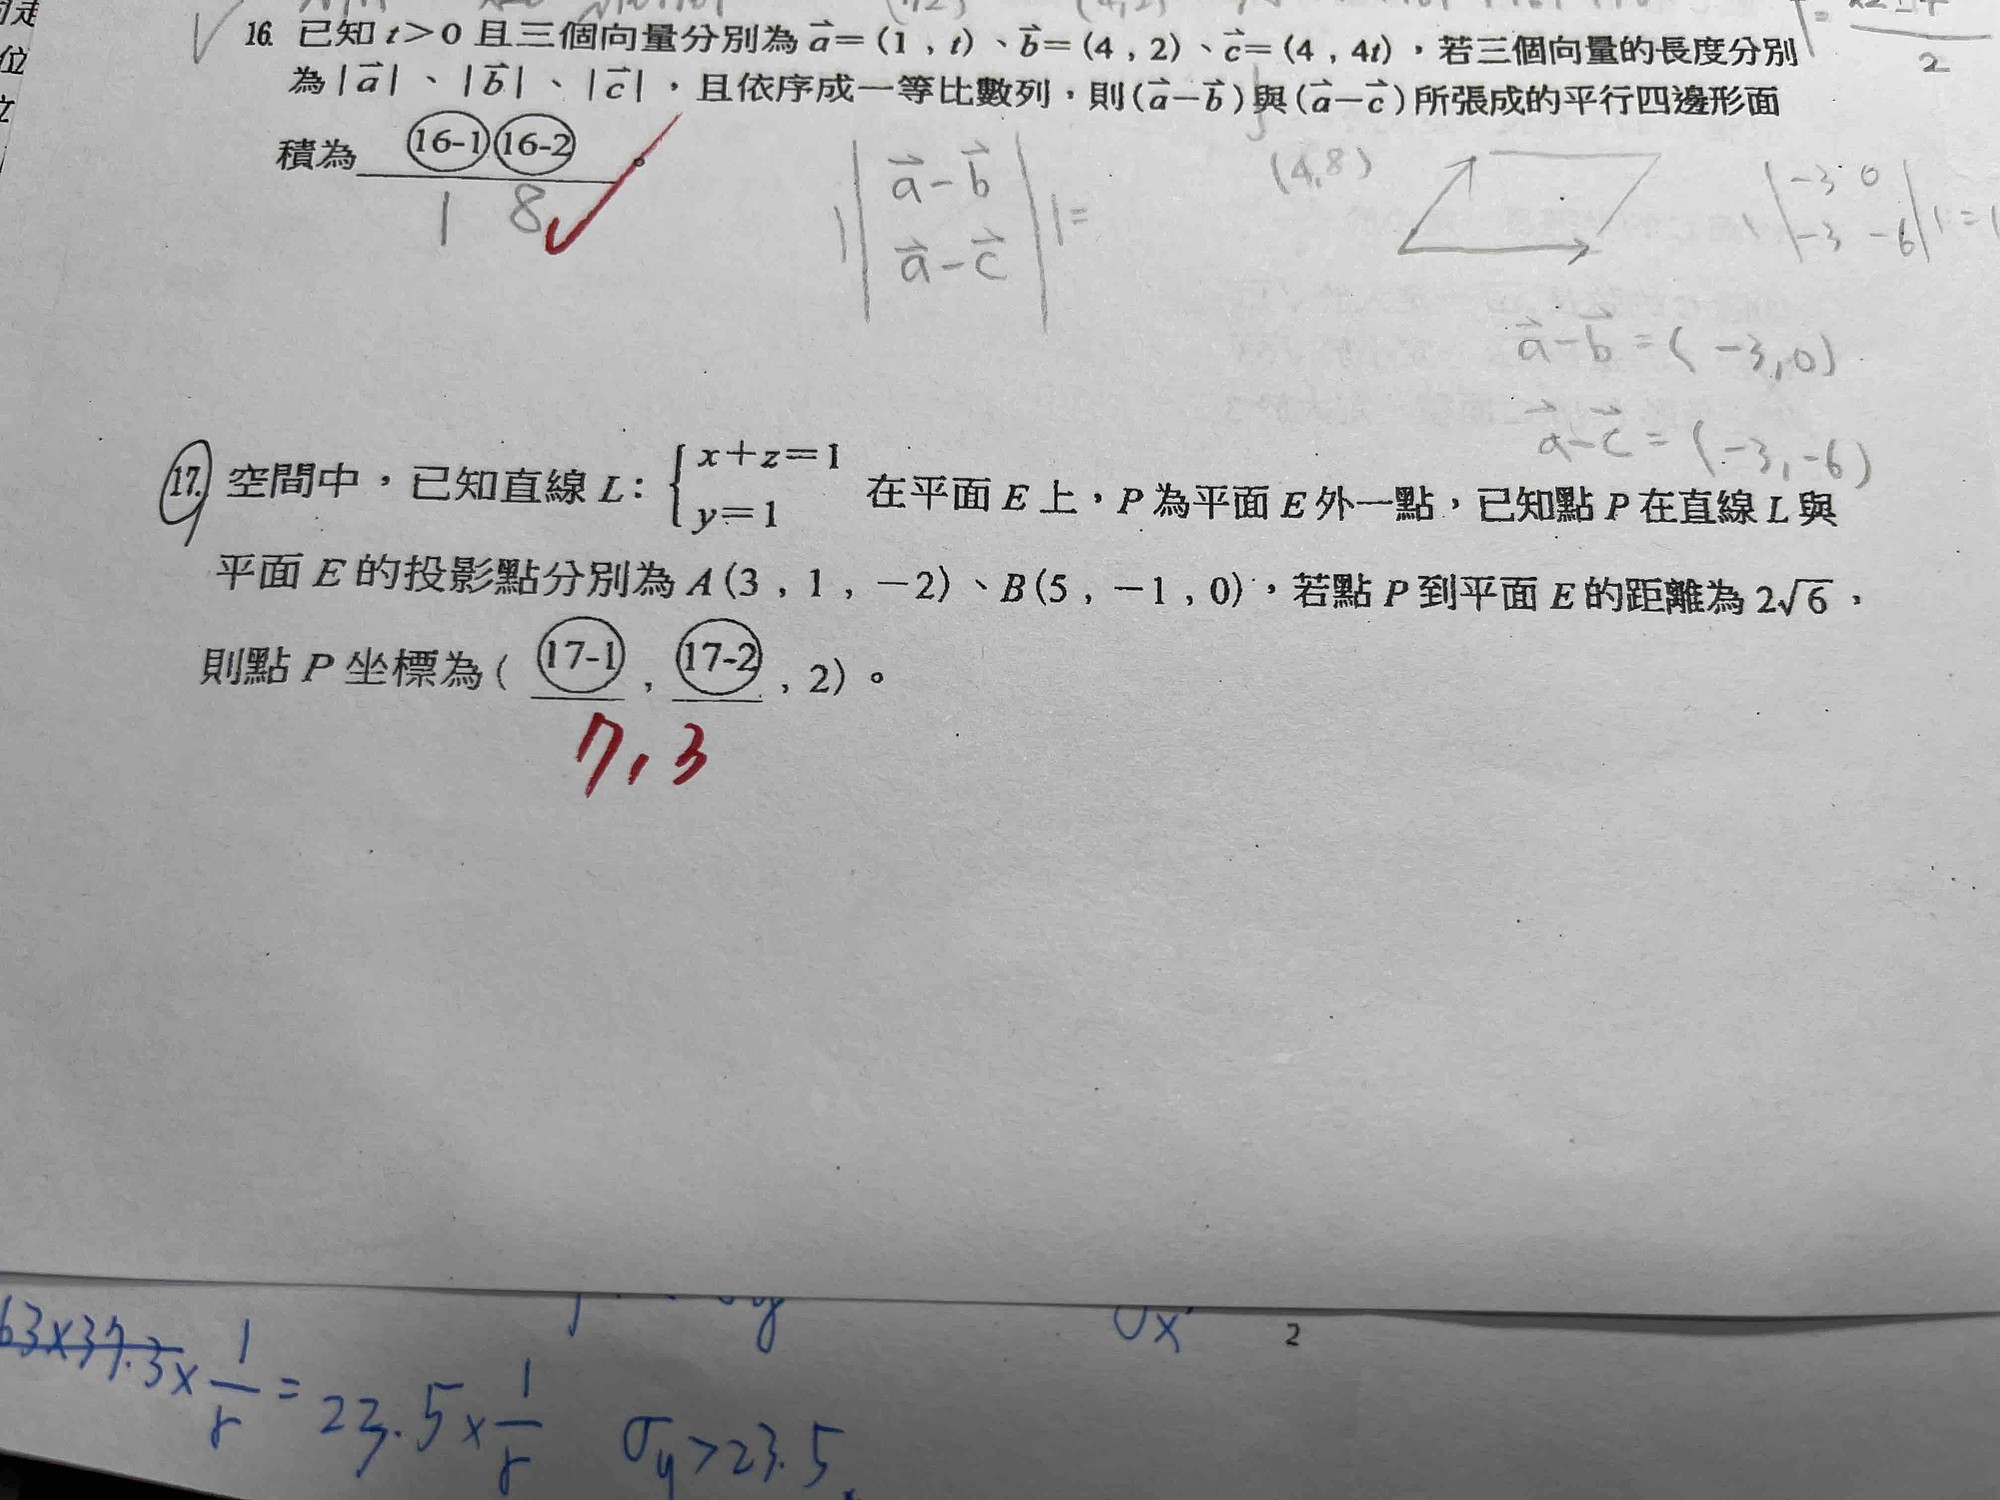 位
16. 已知 t＞0 且三個向量分別為 a⃗＝(1，t)、b⃗＝(4，2)、c⃗＝(4，4t)，若三個向量的長度分別
2
為 |a⃗|、|b⃗|、|c⃗|，且依序成一等比數列，則(a⃗－b⃗)與(a⃗－c⃗)所張成的平行四邊形面
積為 16-1 16-2 。
1 8
||a⃗－b⃗
a⃗－c⃗||=
(4,8)
||-3 0
-3 -6||=1
a⃗－b⃗=(-3,0)
a⃗－c⃗=(-3,-6)
17. 空間中，已知直線 L：{x＋z＝1
y＝1 在平面 E 上，P 為平面 E 外一點，已知點 P 在直線 L 與
平面 E 的投影點分別為 A(3，1，－2)、B(5，－1，0)，若點 P 到平面 E 的距離為 2√6，
則點 P 坐標為( 17-1 ， 17-2 ，2)。
7,3
63×37.3×1/r=23.5×1/r
σy>23.5
σx
2